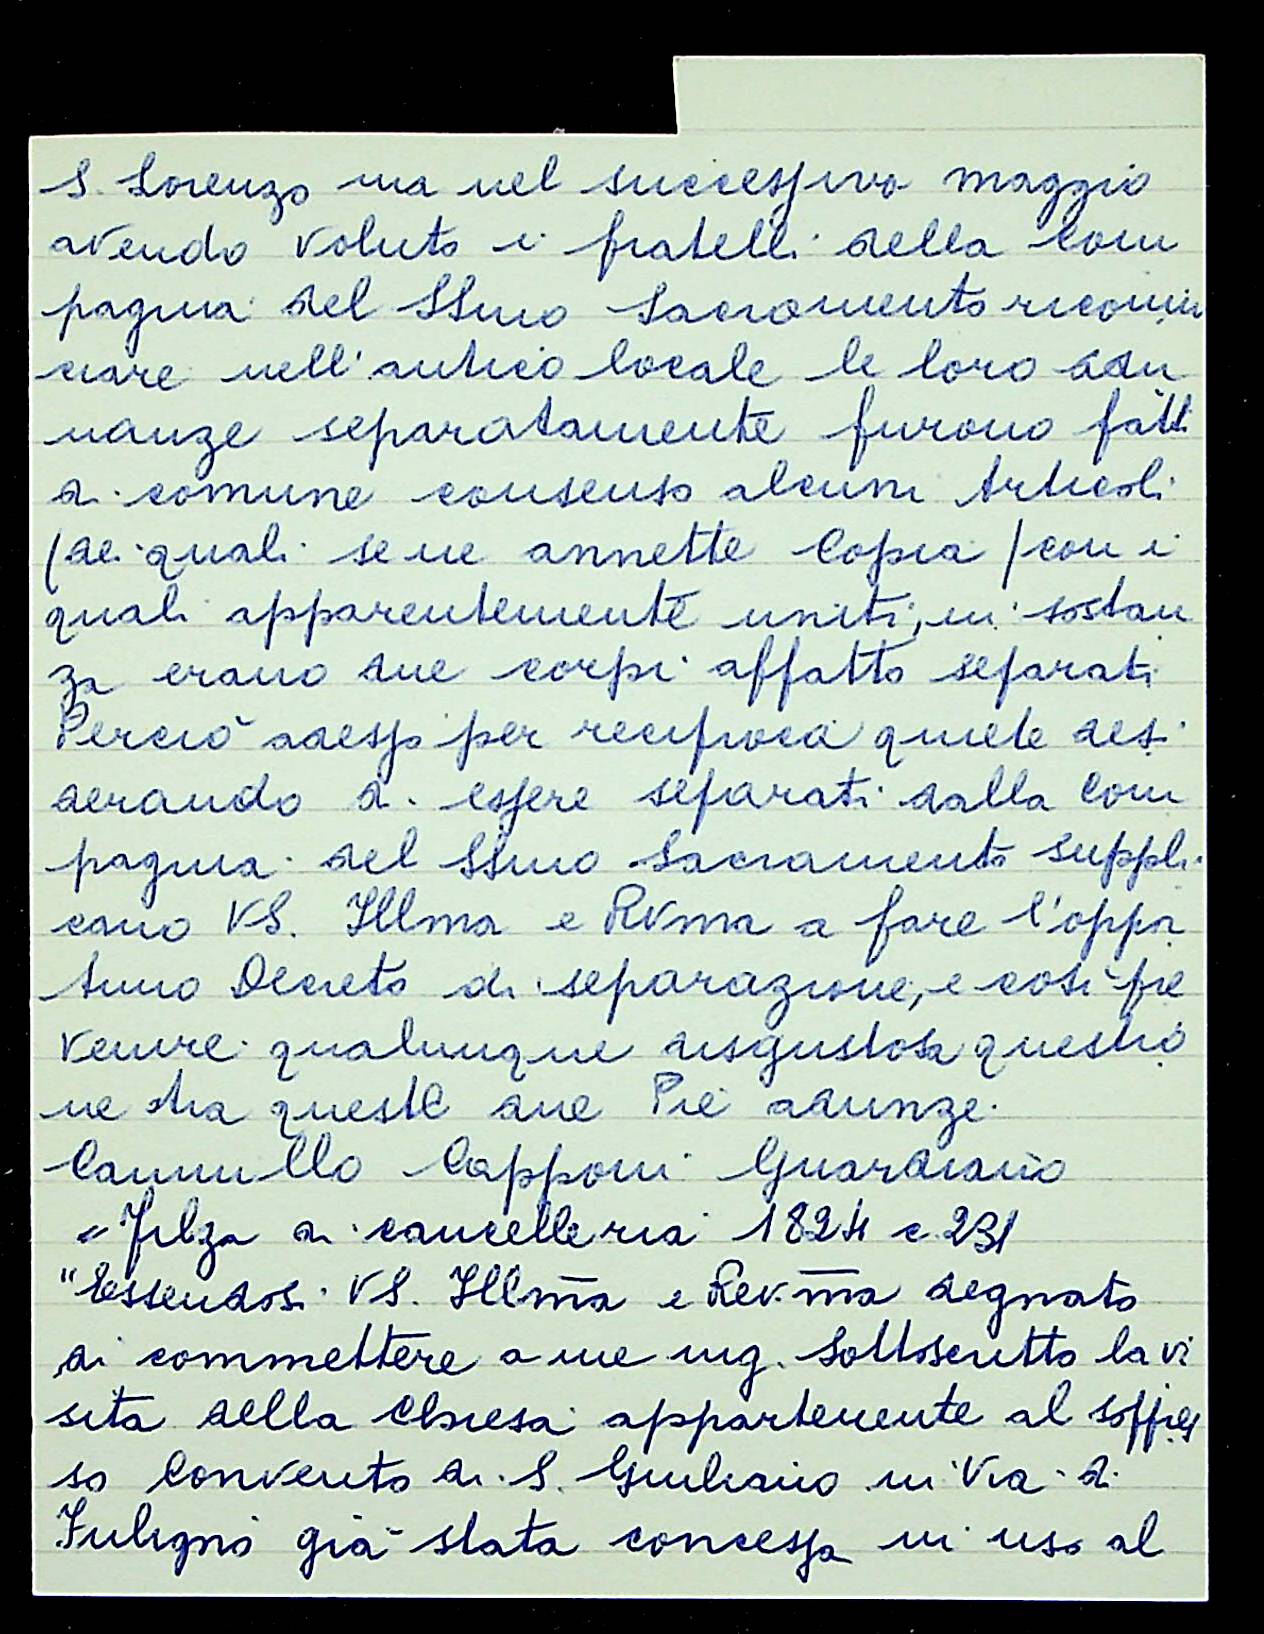 S. Lorenzo ma nel successivo maggio
avendo voluto i fratelli della Com
pagnia del SSmo Sacramento ricomin
ciare nell'antico locale le loro adu
nanze separatamente furono fatti
di comune consenso alcuni Articoli
(dei quali se ne annette Copia) con i
quali apparentemente uniti, in sostan
za erano due corpi affatto separati
Perciò adesso per reciproca quiete desi
derando di essere separati dalla Com
pagnia del SSmo Sacramento suppli
cano VS. Illma e Rvma a fare l'oppor
tuno Decreto di separazione, e così pre
venire qualunque disgustosa questio
ne tra queste due Pie adunze.
Cammillo Capponi Guardiano
"Filza di cancelleria 1824 c. 231
"Essendosi VS. Illma e Rev.ma degnato
di commettere a me ing. sottoscritto la vi
sita della Chiesa appartenente al soppres
so Convento di S. Giuliano in Via di
Fuligno già stata concessa in uso al